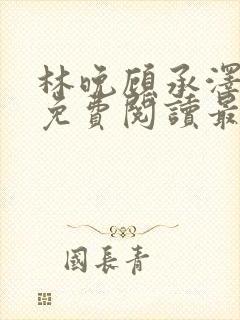 林晚顧承澤
免費閱讀最
國長青